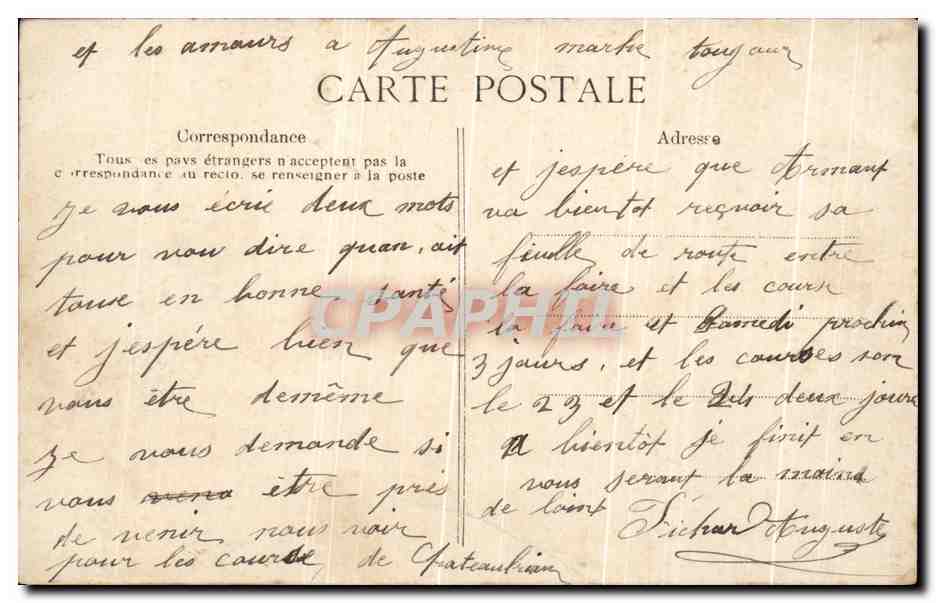 et les amours a Augustine marhe toujour
CARTE POSTALE
Correspondance
Tous les pays étrangers n'acceptent pas la
correspondance au recto, se renseigner à la poste
Je vous écrie deux mots
pour vou dire quan, oit
touse en bonne santé
et j'espére bien que
vous être demême
Je vous demande si
vous être près
de venir nous voir
pour les course de Chateaubrian
Adresse
et j'espére que Armant
va bientot reçvoir sa
fieulle de route entre
la foire et les course
la foire et Samedi prochin
3 jours, et les courses son
le 23 et le 24 deux jours
a bientôt je finit en
vous serant la maine
de loint Fichar Auguste
CPAPHIL